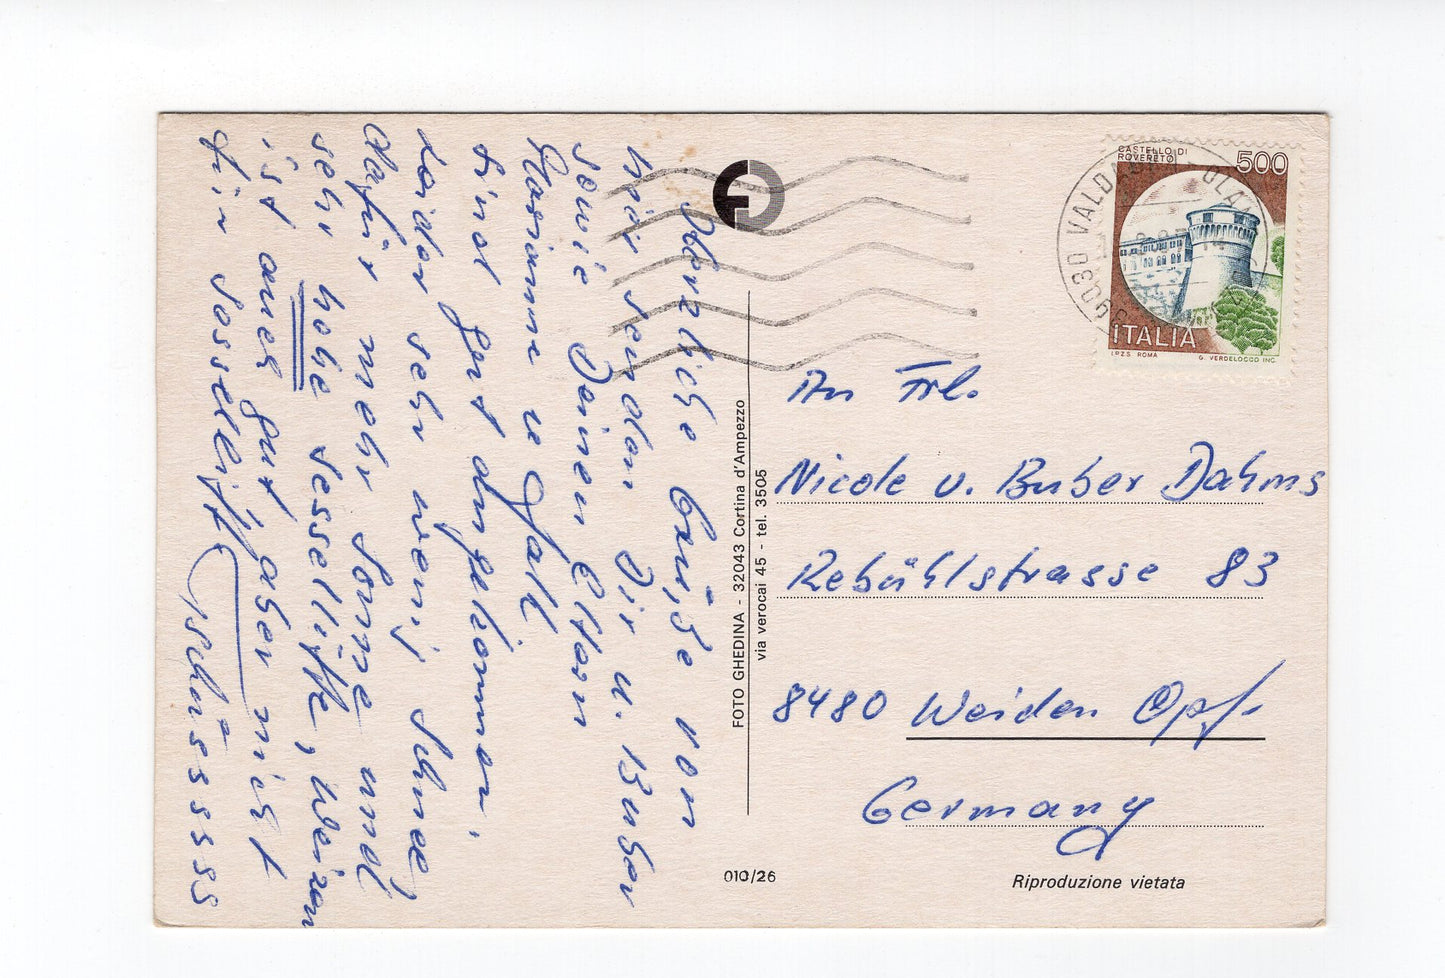 Herzliche Grüße von
hier senden Dir u. Buber
sowie Deinen Eltern
Marianne u
sind gut angekommen.
Leider sehr wenig Schnee,
dafür mehr Sonne und
sehr hohe Sessellifte,
ist auch gut, aber nicht
für Sessellift
FOTO GHEDINA - 32043 Cortina d'Ampezzo
via verocai 45 - tel. 3505
010/26
CASTELLO DI
ROVERETO
500
ITALIA
I.P.Z.S. ROMA
G. VERDELOCCO INC.
An Frl.
Nicole u. Buber Dahms
Rebühlstrasse 83
8480 Weiden Opf.
Germany
Riproduzione vietata